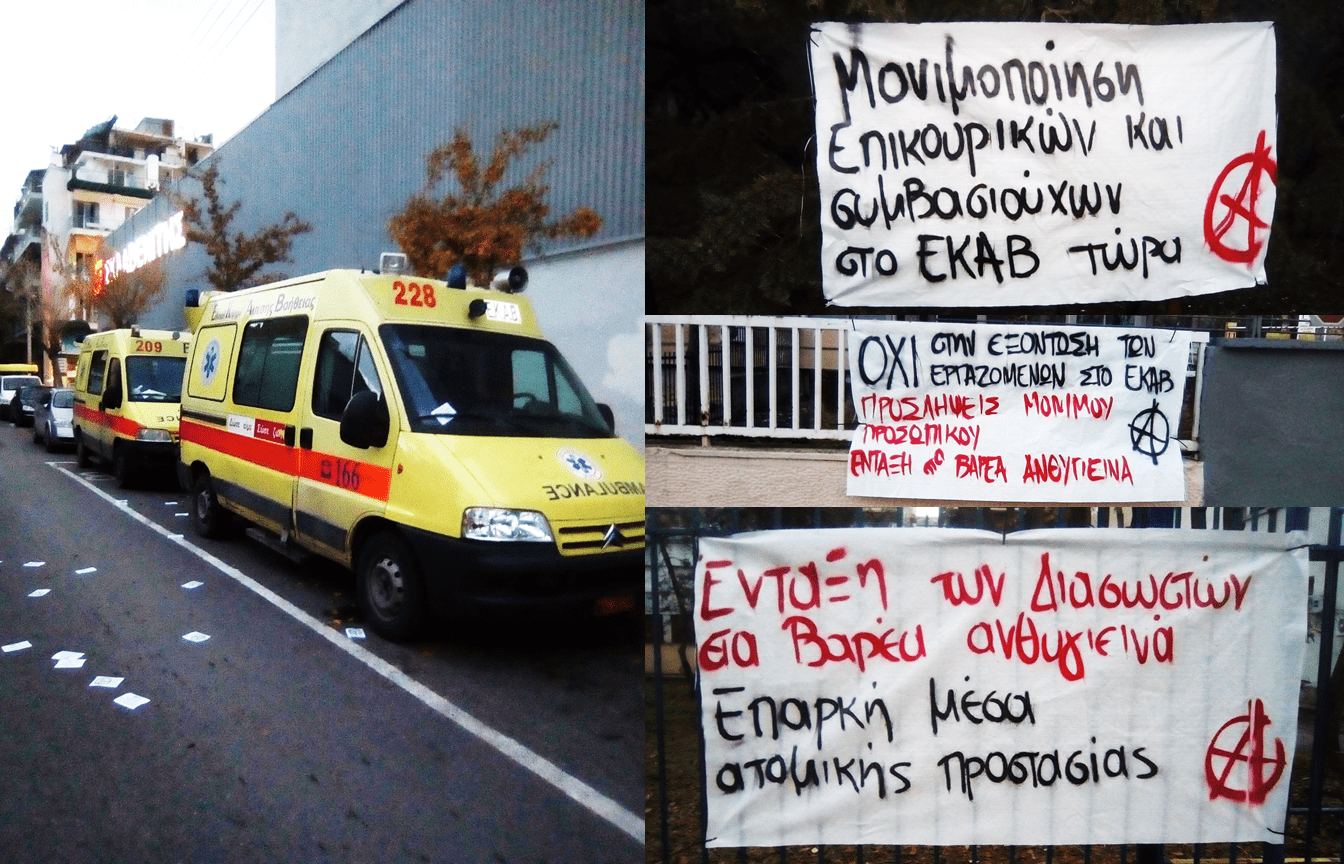 ΣΚΛΑΒΕΝΙΤΗΣ
209
228
ΕΚΑΒ
Άμεσης Βοήθειας
166
AMBULANCE
Μονιμοποίηση
Επικουρικών και
συμβασιούχων
στο ΕΚΑΒ τώρα
ΟΧΙ ΣΤΗΝ ΕΞΟΝΤΩΣΗ ΤΩΝ
ΕΡΓΑΖΟΜΕΝΩΝ ΣΤΟ ΕΚΑΒ
ΠΡΟΣΛΗΨΕΙΣ ΜΟΝΙΜΟΥ
ΠΡΟΣΩΠΙΚΟΥ
ΕΝΤΑΞΗ στα ΒΑΡΕΑ ΑΝΘΥΓΙΕΙΝΑ
Ένταξη των Διασωστών
στα Βαρέα ανθυγιεινά
Επαρκή μέσα
ατομικής προστασίας